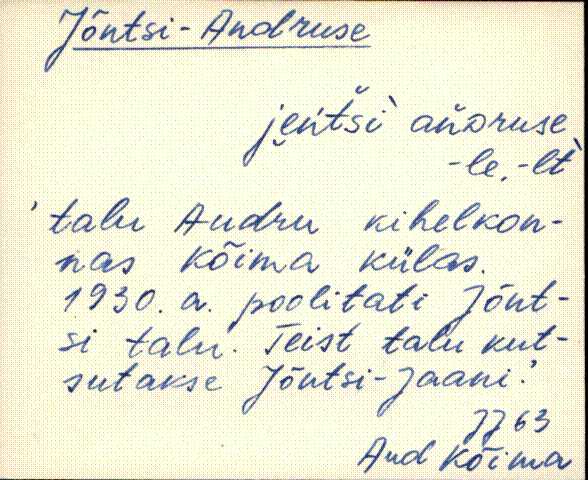 Jõntsi-Andruse
jen̆tši` andruse
-le, -lt`
'talu Audru kihelkon-
nas Kõima külas.
1930. a. poolitati Jõnt-
si talu. Teist talu kut-
sutakse Jõntsi-Jaani.'
JJ 63
Aud Kõima